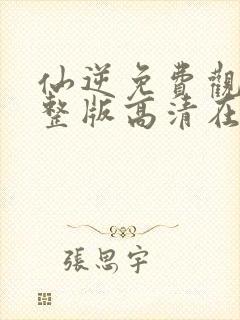 仙逆免費觀
整版高清在
張思宇